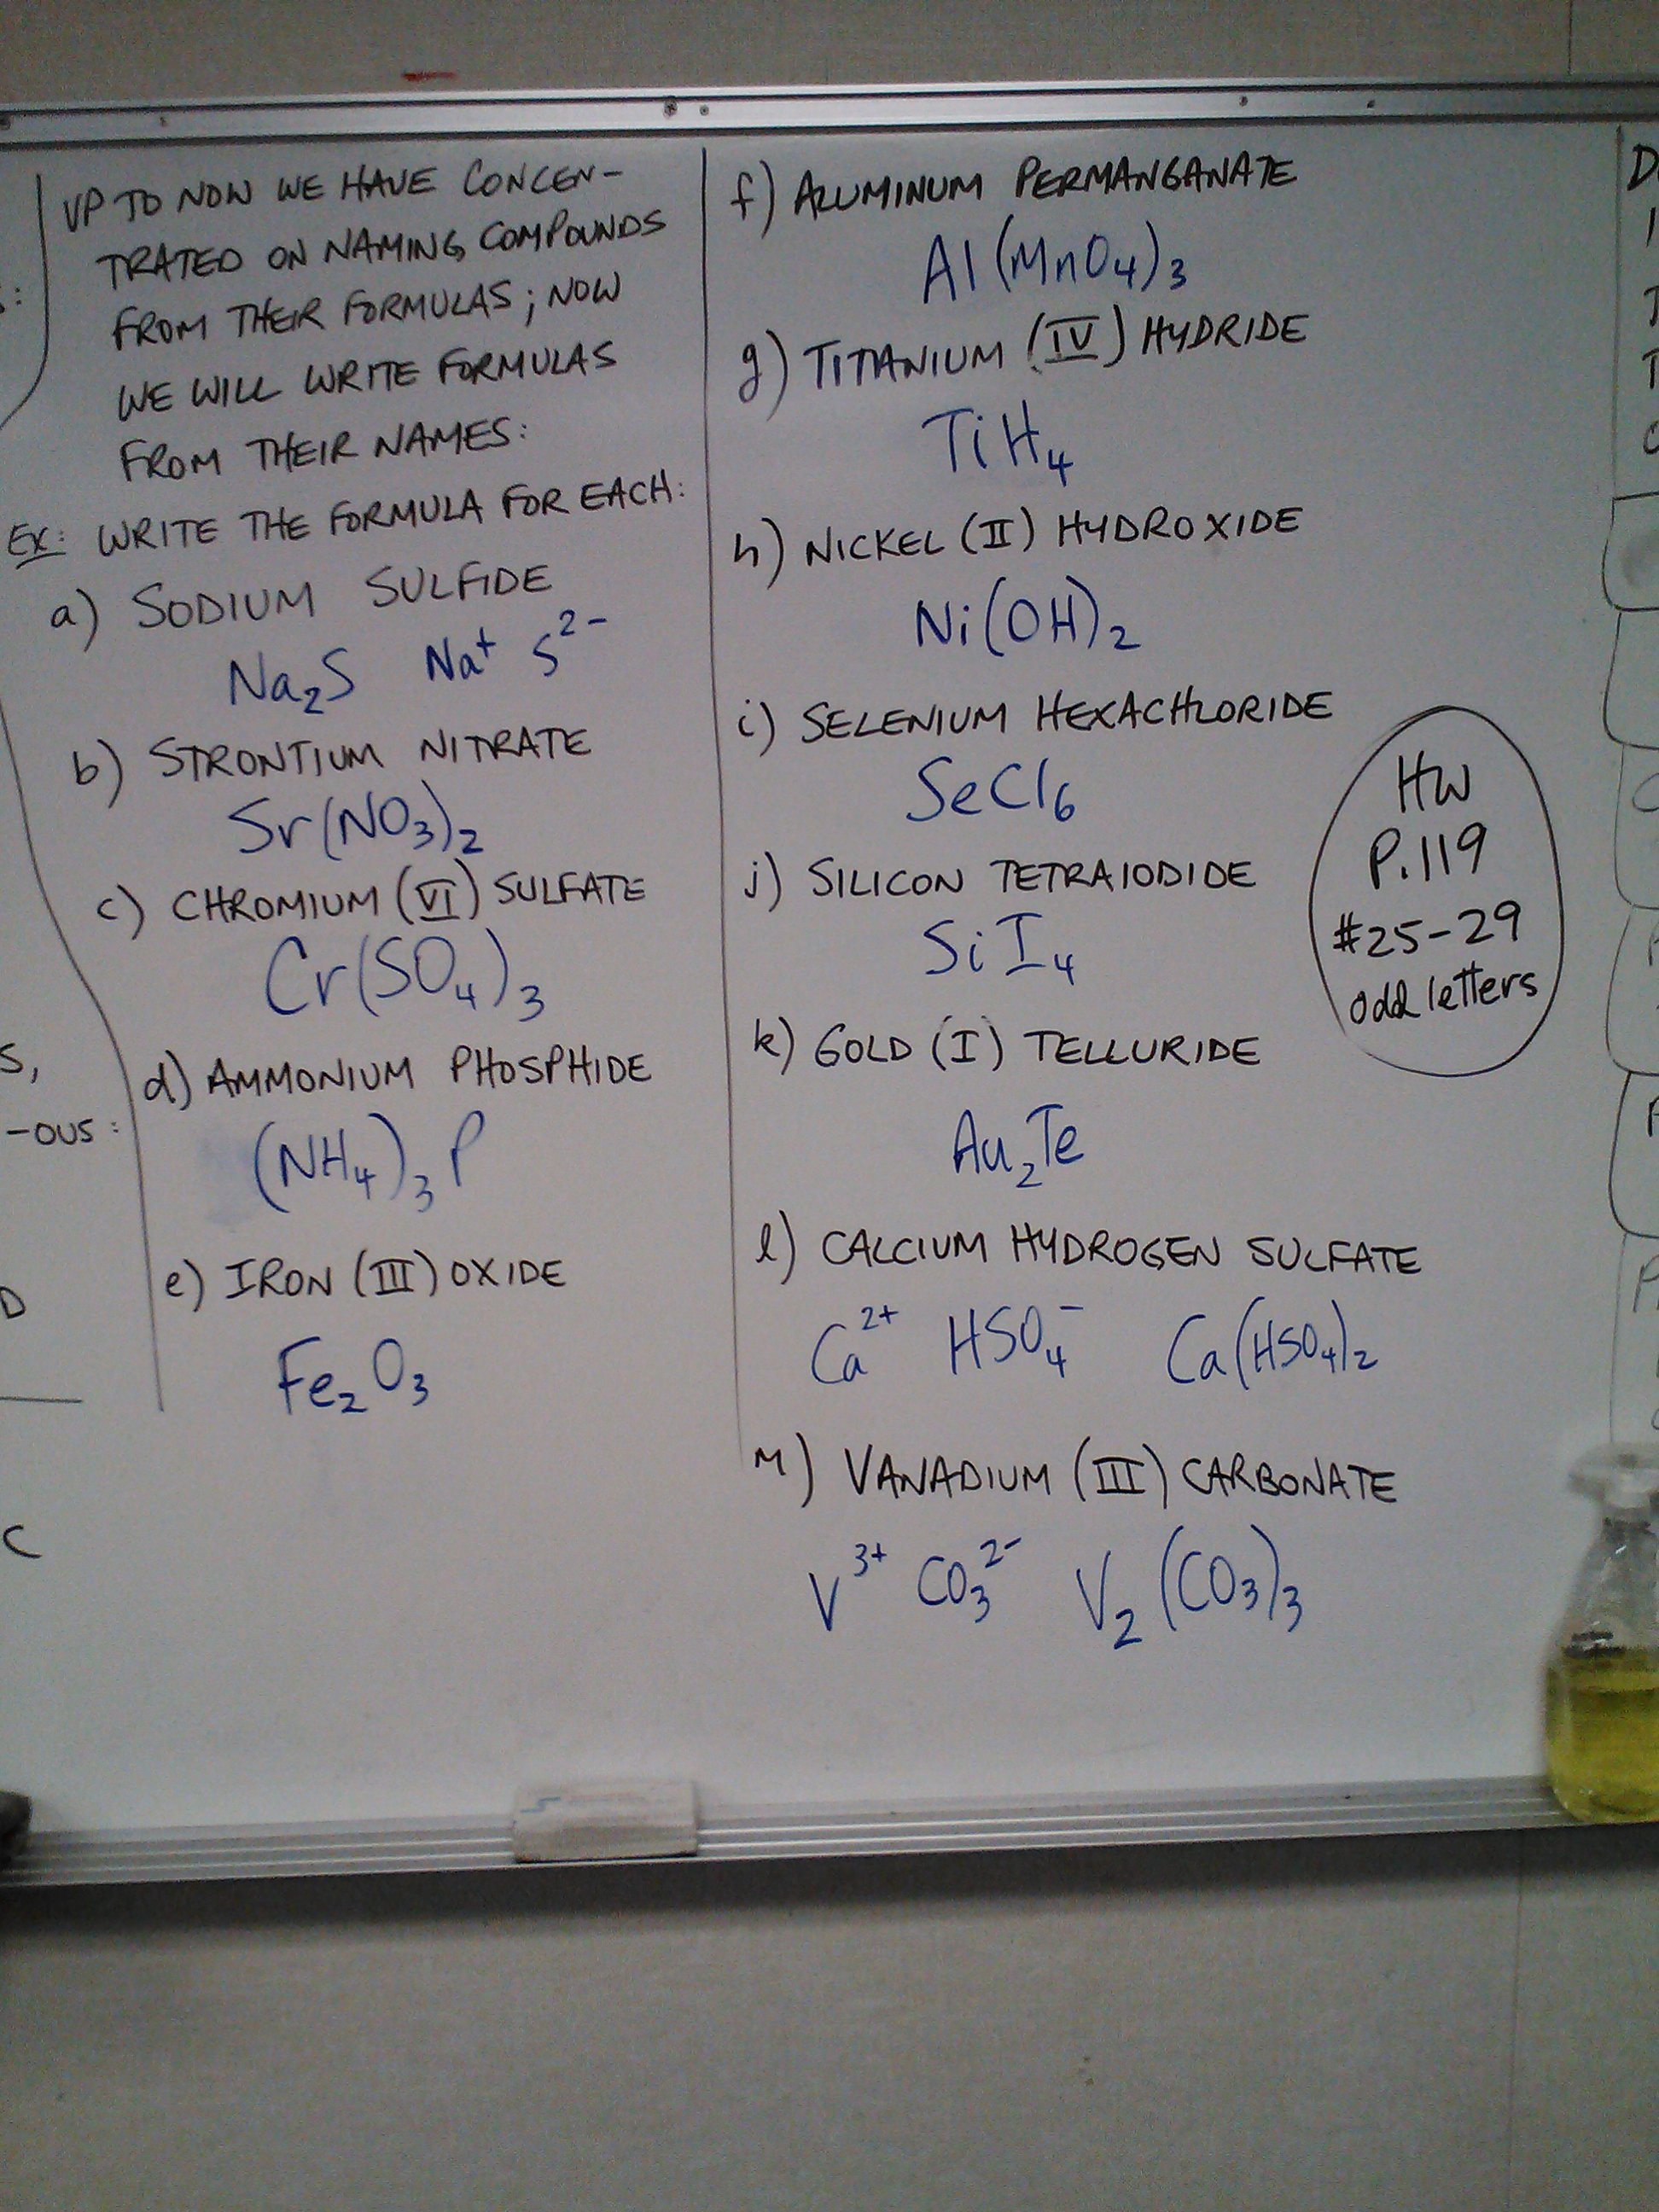 UP TO NOW WE HAVE CONCEN-
TRATED ON NAMING COMPOUNDS
FROM THEIR FORMULAS; NOW
WE WILL WRITE FORMULAS
FROM THEIR NAMES:
EX: WRITE THE FORMULA FOR EACH:
a) SODIUM SULFIDE
Na₂S Na⁺ S²⁻
b) STRONTIUM NITRATE
Sr(NO₃)₂
c) CHROMIUM (VI) SULFATE
Cr(SO₄)₃
d) AMMONIUM PHOSPHIDE
(NH₄)₃P
e) IRON (III) OXIDE
Fe₂O₃
f) ALUMINUM PERMANGANATE
Al(MnO₄)₃
g) TITANIUM (IV) HYDRIDE
TiH₄
h) NICKEL (II) HYDROXIDE
Ni(OH)₂
i) SELENIUM HEXACHLORIDE
SeCl₆
j) SILICON TETRAIODIDE
SiI₄
k) GOLD (I) TELLURIDE
Au₂Te
l) CALCIUM HYDROGEN SULFATE
Ca²⁺ HSO₄⁻ Ca(HSO₄)₂
m) VANADIUM (III) CARBONATE
V³⁺ CO₃²⁻ V₂(CO₃)₃
HW
P.119
#25-29
odd letters
S,
-OUS:
D
C